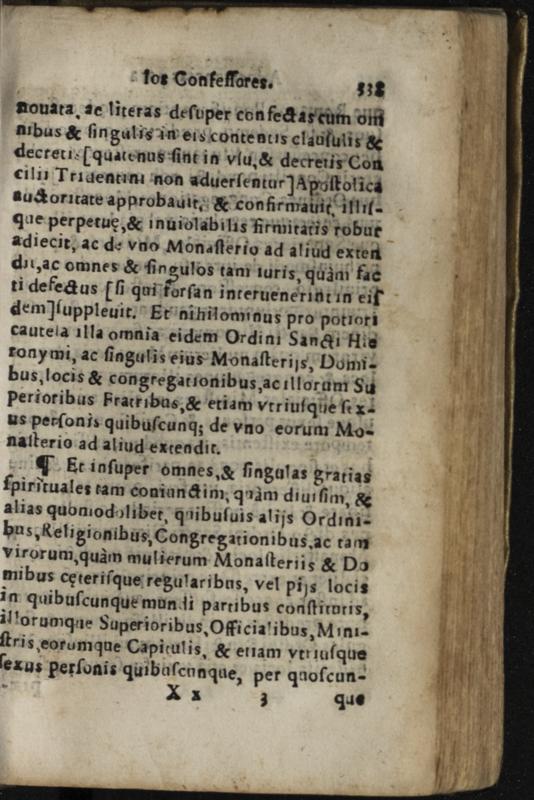 los Confessores. 338
nouata, ac literas desuper confectas cum om
nibus & singulis in eis contentis clausulis &
decretis [quatenus sint in vsu, & decretis Con
cilii Tridentini non aduersentur] Apostolica
auctoritate approbauit, & confirmauit, illis-
que perpetuę, & inuiolabilis firmitatis robur
adiecit, ac de vno Monasterio ad aliud exten
dit, ac omnes & singulos tam iuris, quàm fac
ti defectus [si qui forsan interuenerint in eis
dem] suppleuit. Et nihilominus pro potiori
cautela illa omnia eidem Ordini Sancti Hie
ronymi, ac singulis eius Monasterijs, Domi-
bus, locis & congregationibus, ac illorum Su
perioribus Fratribus, & etiam vtriusque sex-
us personis quibuscunq; de vno eorum Mo-
nasterio ad aliud extendit.
¶ Et insuper omnes, & singulas gratias
spirituales tam coniunctim, quàm diuisim, &
alias quomodolibet, quibusuis alijs Ordini-
bus, Religionibus, Congregationibus, ac tam
virorum, quàm mulierum Monasteriis & Do
mibus cęterisque regularibus, vel pijs locis
in quibuscunque mundi partibus constitutis,
illorumque Superioribus, Officialibus, Mini-
stris, eorumque Capitulis, & etiam vtriusque
sexus personis quibuscunque, per quoscun-
X x 3 que